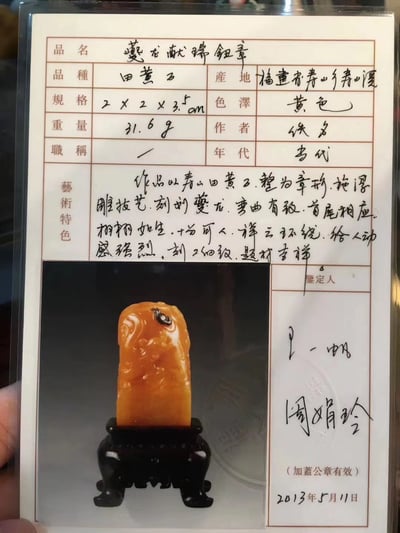 品名 夔龙献瑞钮章
品種 田黄石 産地 福建省寿山乡寿山溪
規格 2×2×3.5cm 色澤 黄色
重量 31.6g 作者 佚名
職稱 / 年代 当代
藝術特色
作品以寿山田黄石,整为章形,施浮
雕技艺,刻划夔龙,弯曲有致,首尾相应,
栩栩如生,十分可人,祥云环绕,给人动
感强烈。刻工细致,题材吉祥。
鑒定人
王一帆
周娟玲
(加蓋公章有效)
2013年5月11日